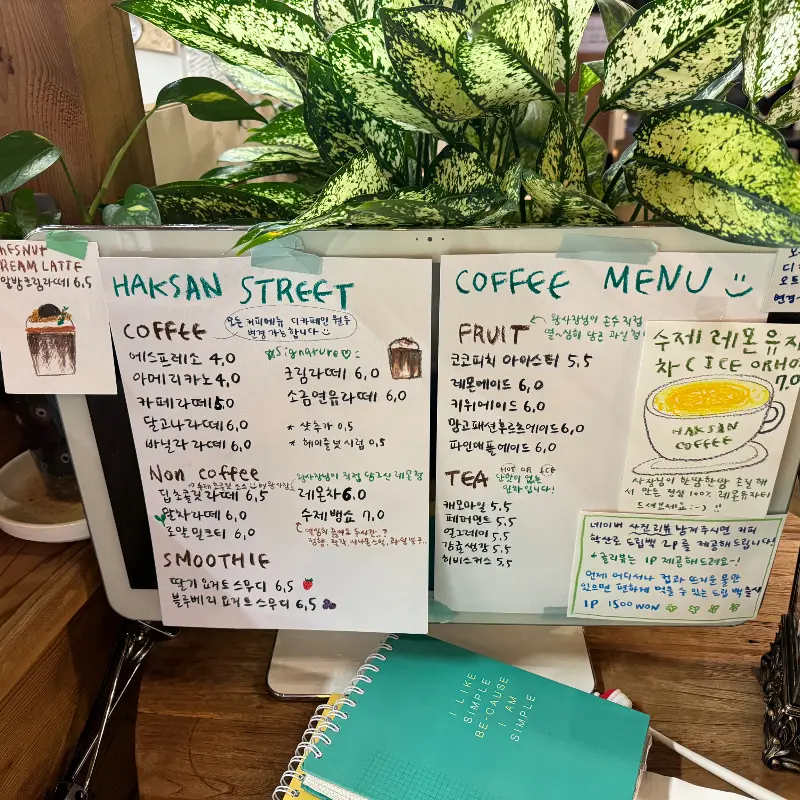 REAM LATTE
알밤크림라떼 6,5
HAKSAN STREET
COFFEE
모든 커피메뉴 디카페인 원두
변경 가능합니다
에스프레소 4,0
아메리카노 4,0
카페라떼 5,0
달고나라떼 6,0
바닐라라떼 6,0
Signature
크림라떼 6,0
소금연유라떼 6,0
* 샷추가 0,5
* 헤이즐넛 시럽 0,5
Non coffee
딥초콜릿 라떼 6,5
말차라떼 6,0
로얄밀크티 6,0
왕사장님이 직접 담그신 레몬청
레몬차 6,0
수제뱅쇼 7,0
SMOOTHIE
딸기 요거트 스무디 6,5
블루베리 요거트 스무디 6,5
COFFEE MENU
FRUIT
왕사장님이 손수 직접
열심히 담근 과일청
코코피치 아이스티 5,5
레몬에이드 6,0
키위에이드 6,0
망고패션후르츠에이드 6,0
파인애플에이드 6,0
TEA
HOT OR ICE
단맛이 없는
잎차입니다!
캐모마일 5,5
페퍼민트 5,5
얼그레이 5,5
감귤생강 5,5
히비스커스 5,5
수제 레몬 유자
차 (ICE OR HO
7,0
HAKSAN
COFFEE
사장님이 한땀한땀 손질해
서 만든 정성 100% 레몬유자티
드셔보세요 :-)
네이버 사진리뷰 남겨주시면 커피
학산로 드립백 2P를 제공해드립니다!
*글리뷰는 1P 제공해드려요~!
언제 어디서나 컵과 뜨거운 물만
있으면 편하게 먹을 수 있는 드립백 출시
1P 1500 WON
I LIKE
SIMPLE
BE-CAUSE
I AM
SIMPLE